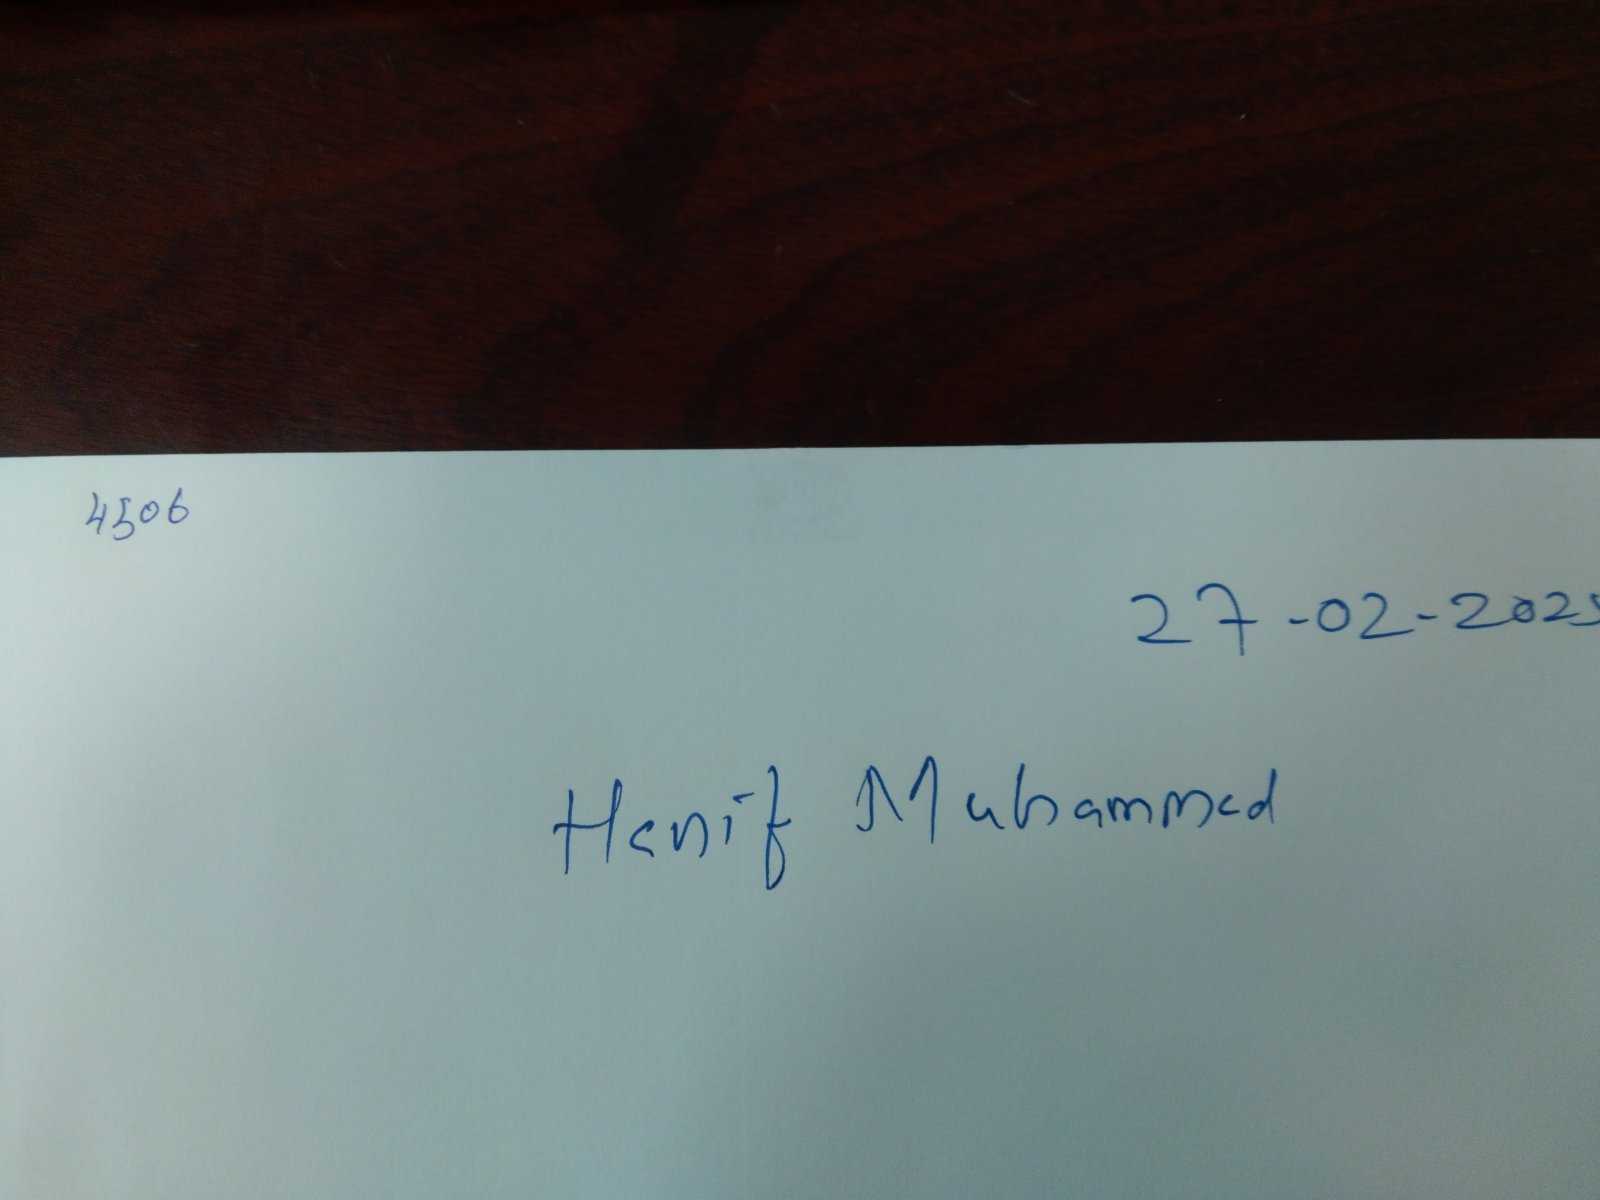 4506
27-02-2025
Hanif Muhammad